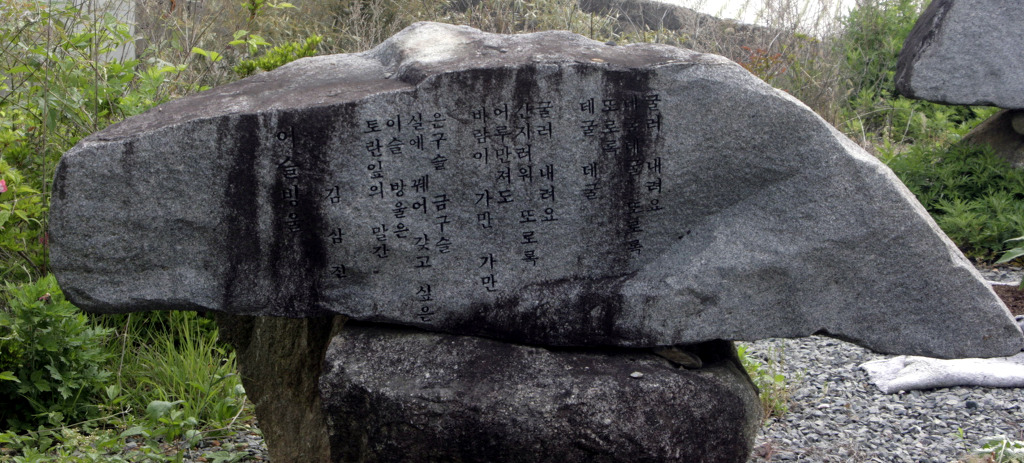 이슬방울
김 삼 진
토란잎의 말간
이슬 방울은
실에 꿰어 갖고 싶은
은구슬 금구슬
바람이 가만 가만
어루만져도
간지러워 또로록
굴러 내려요
데굴 데굴
또로록
데굴 또로록
굴러 내려요